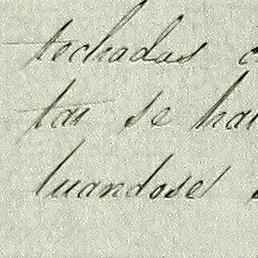 techadas
tas se ha
luandose